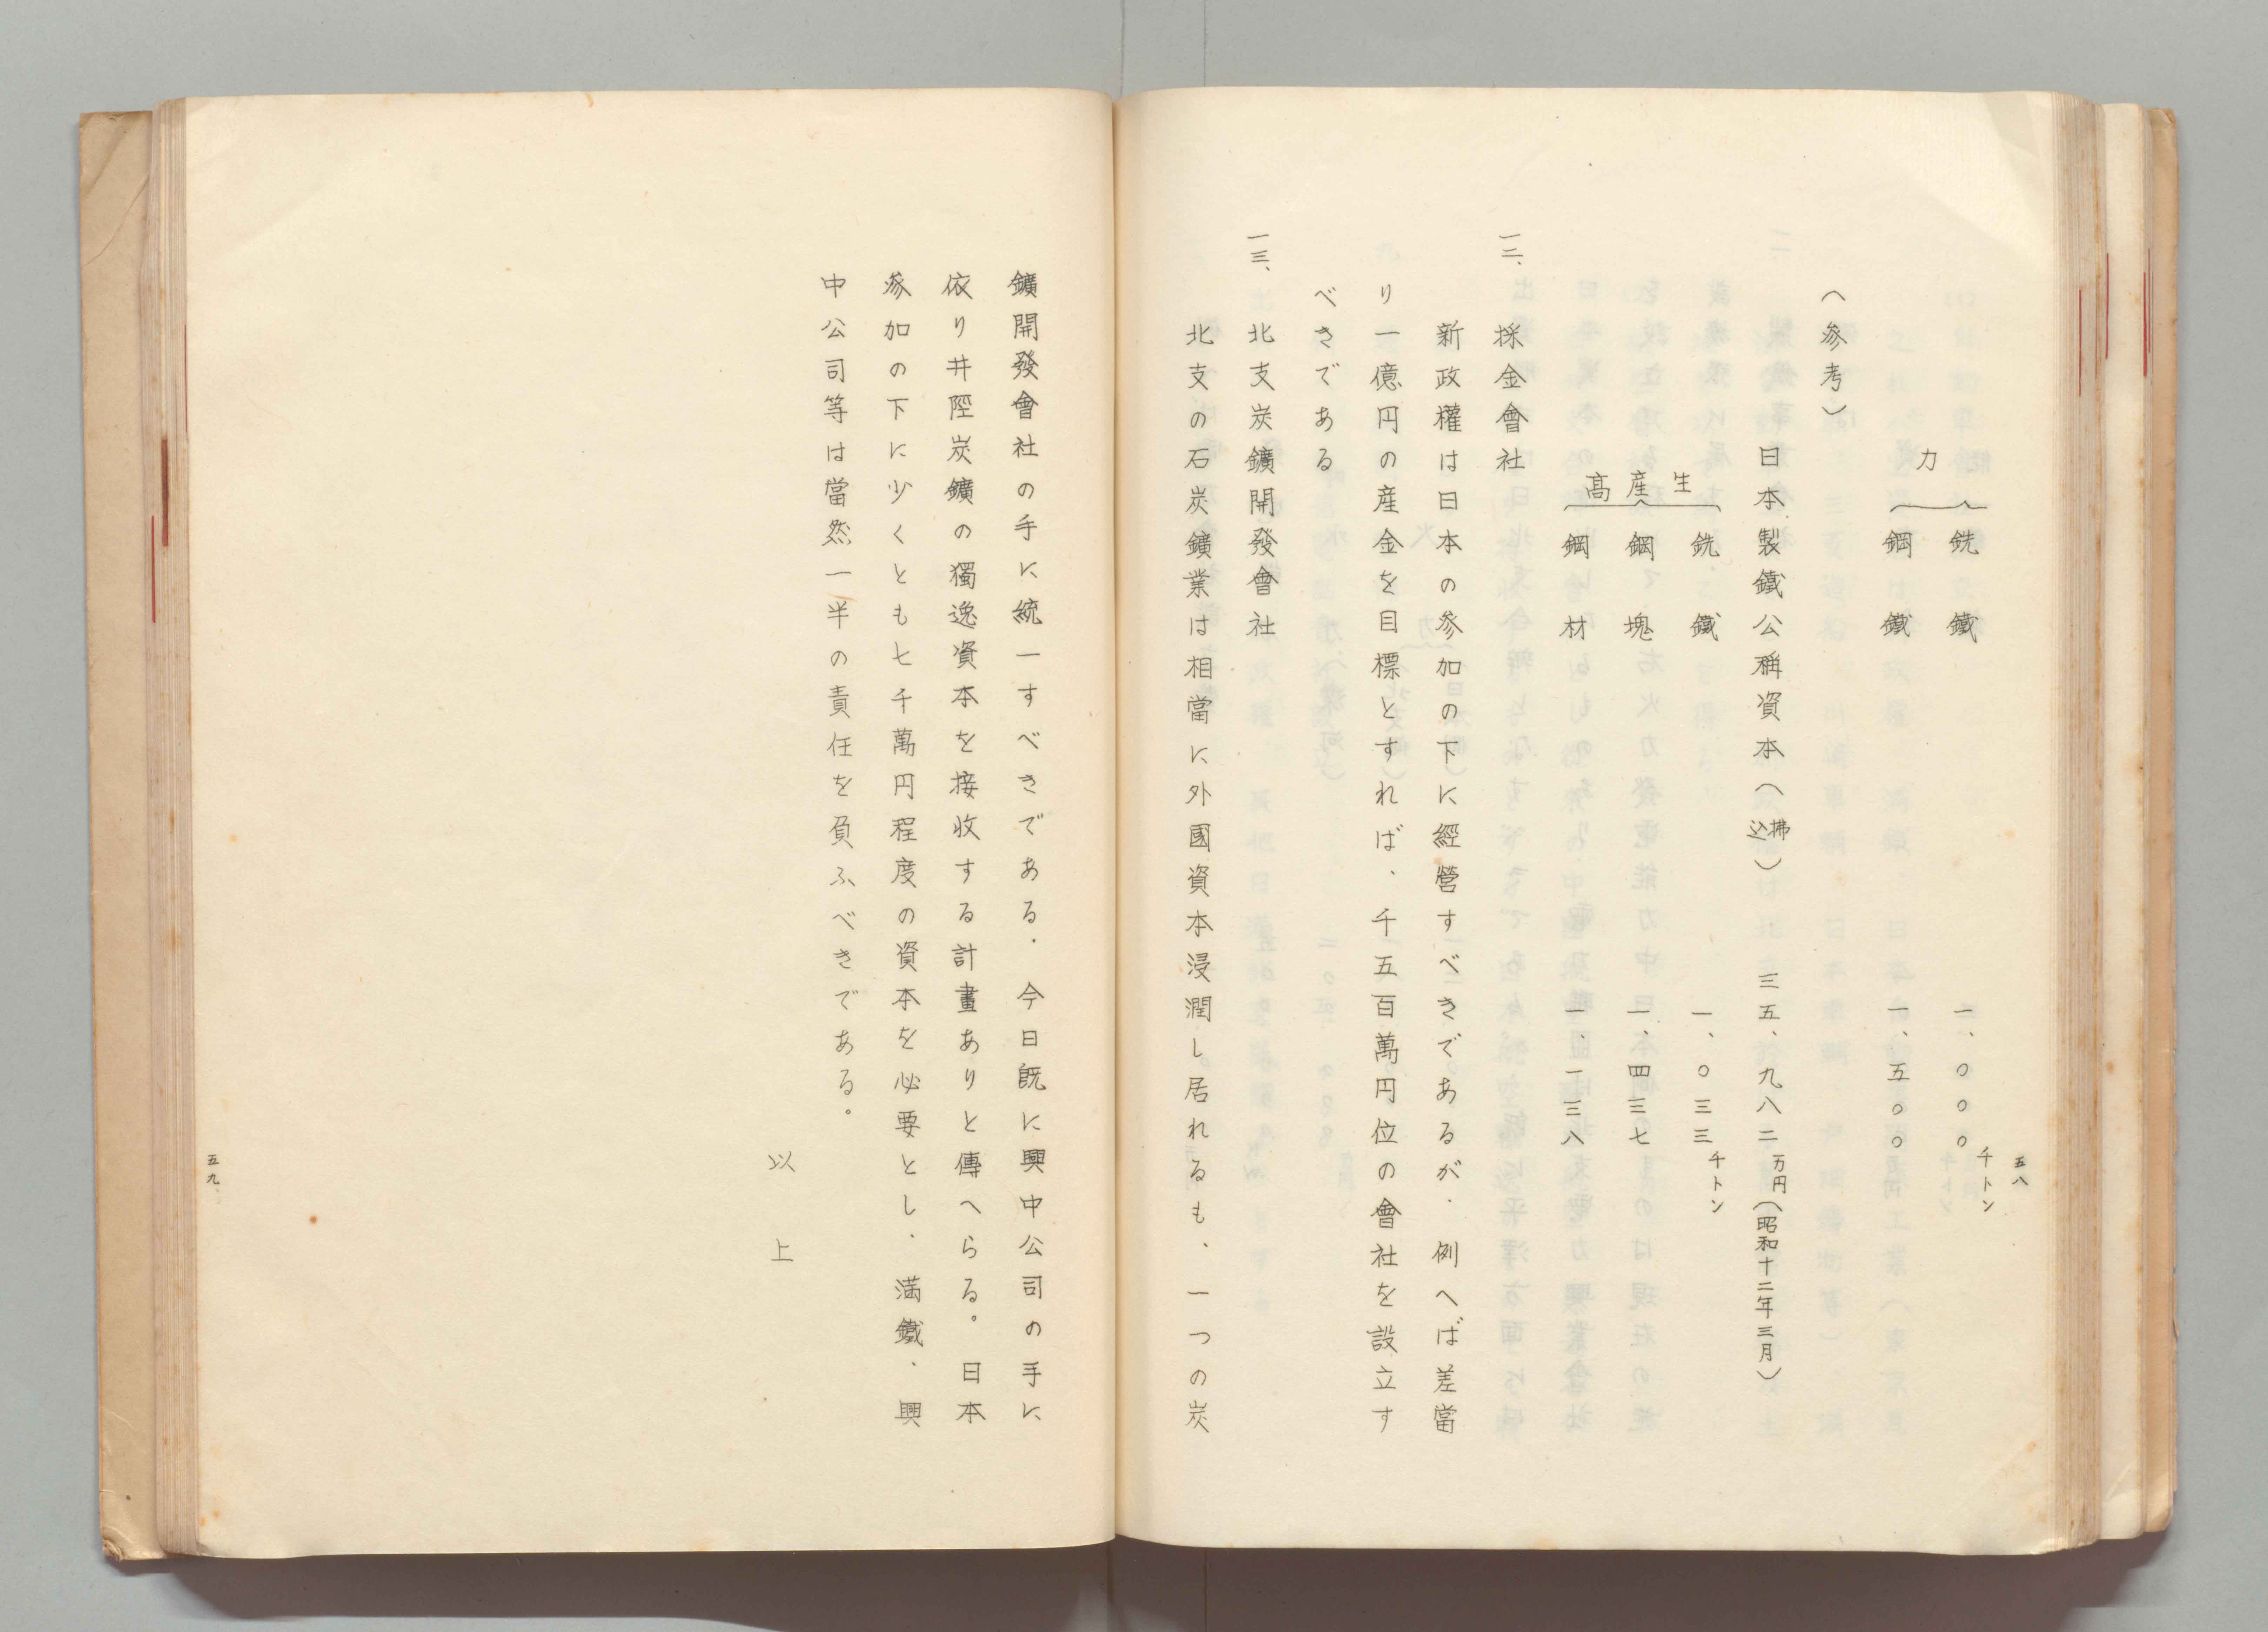 五八
力
銑鐵 一、〇〇〇千トン
鋼鐵 一、五〇〇
(參考)
日本製鐵公稱資本(拂込) 三五、九八二万円(昭和十二年三月)
生産高
銑鐵 一、〇三三千トン
鋼塊 一、四三七
鋼材 一、一三八
一二、採金會社
新政權は日本の參加の下に經營すべきであるが、例へば差當
り一億円の産金を目標とすれば、千五百萬円位の會社を設立す
べきである
一三、北支炭鑛開發會社
北支の石炭鑛業は相當に外國資本浸潤し居れるも、一つの炭
鑛開發會社の手に統一すべきである。今日既に興中公司の手に
依り井陘炭鑛の獨逸資本を接收する計畫ありと傳へらる。日本
參加の下に少くとも七千萬円程度の資本を必要とし、満鐵、興
中公司等は當然一半の責任を負ふべきである。
以上
五九